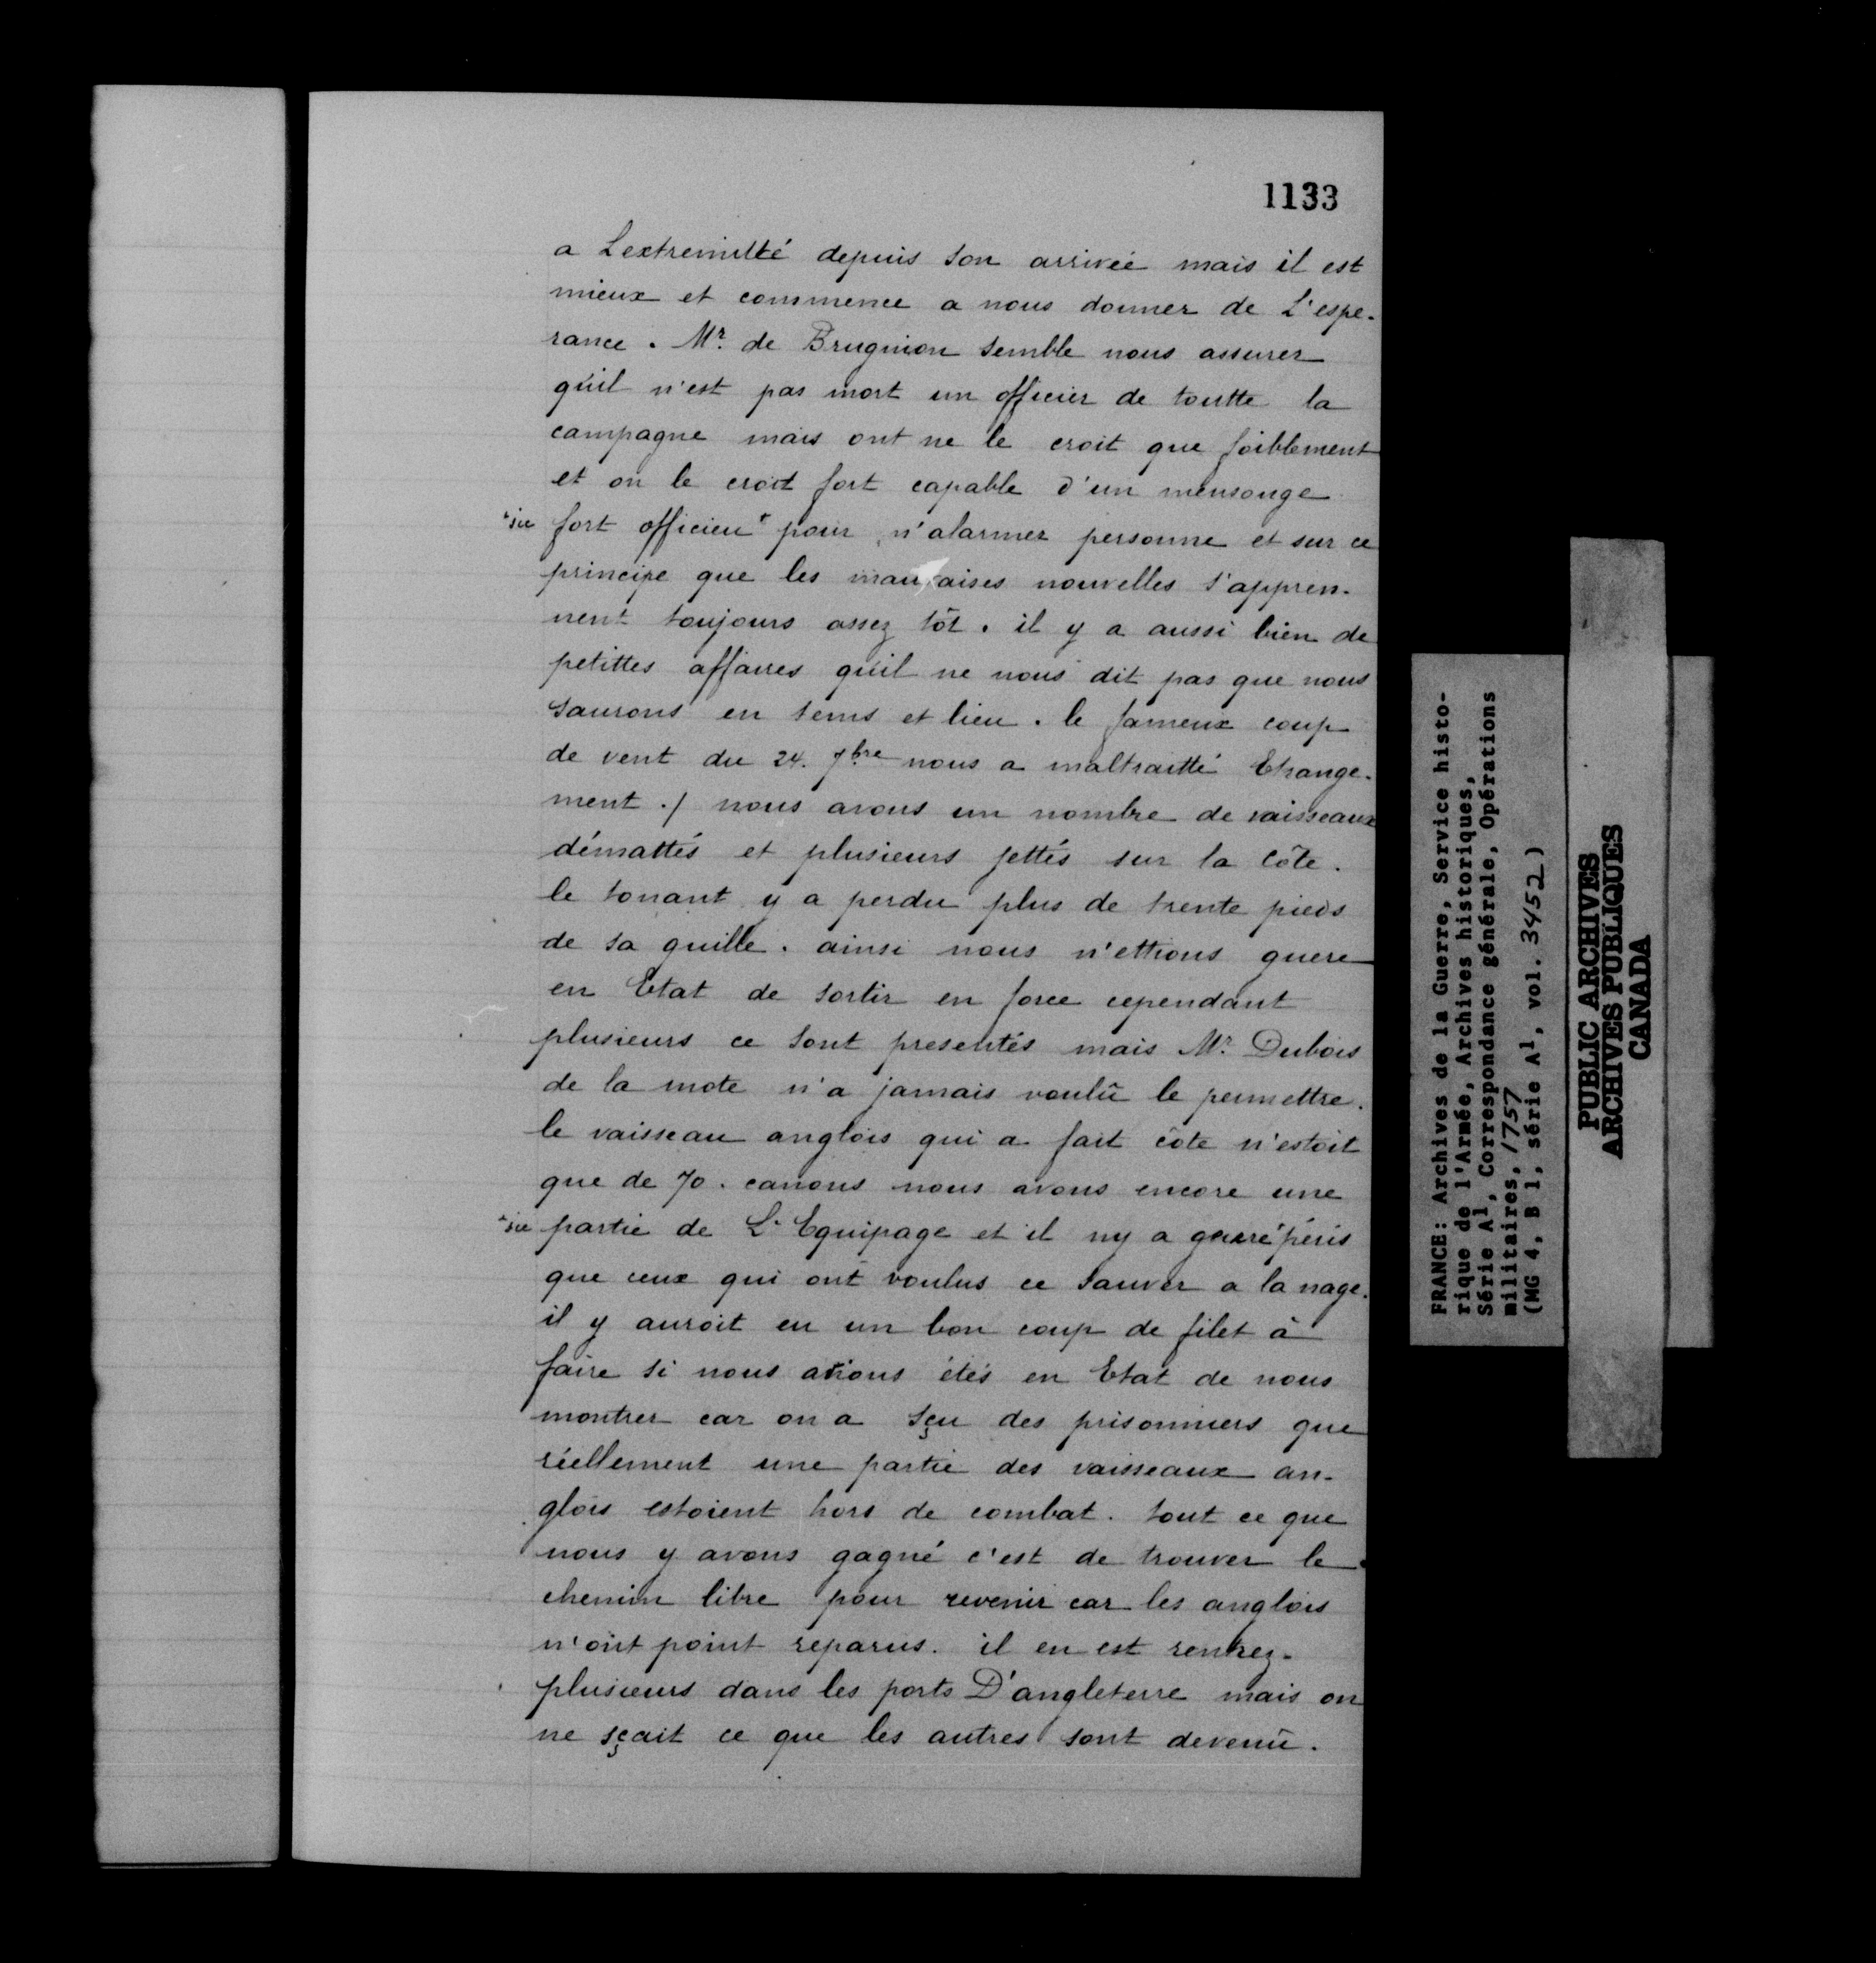 1133
a Lextremitté depuis son arrivée mais il est
mieux et commence a nous donner de L'espe-
rance. Mr. de Brugnion semble nous assurer
qu'il n'est pas mort un officier de toutte la
campagne mais ont ne le croit que foiblement
et on le croit fort capable d'un mensonge
+sic fort officieu+ pour n'alarmer personne et sur ce
principe que les mauvaises nouvelles s'appren-
nent toujours assez tôt. il y a aussi bien de
petittes affaires qu'il ne nous dit pas que nous
saurons en tems et lieu. le fameux coup
de vent du 24. 7bre nous a maltraitté Etrange-
ment ./ nous avons un nombre de vaisseaux
démattés et plusieurs jettés sur la Côte.
le tonant y a perdu plus de trente pieds
de sa quille. ainsi nous n'ettions guere
en Etat de sortir en force cependant
plusieurs ce sont presentés mais Mr. Dubois
de la mote n'a jamais voulû le permettre.
le vaisseau anglois qui a fait côte n'estoit
que de 70. canons nous avons encore une
+sic partie de L'Equipage et il ny a guere+ péris
que ceux qui ont voulus ce sauver a la nage.
il y auroit eu un bon coup de filet à
faire si nous avions étés en Etat de nous
montrer car on a sçu des prisonniers que
réellement une partie des vaisseaux an-
glois estoient hors de combat. tout ce que
nous y avons gagné c'est de trouver le
chemin libre pour revenir car les anglois
n'ont point reparus. il en est rentrez-
plusieurs dans les ports D'angleterre mais on
ne sçait ce que les autres sont devenû.
FRANCE: Archives de la Guerre, Service histo-
rique de l'Armée, Archives historiques,
Série A1, Correspondance générale, Opérations
militaires, 1757
(MG 4, B 1, série A1, vol. 3452)
PUBLIC ARCHIVES
ARCHIVES PUBLIQUES
CANADA